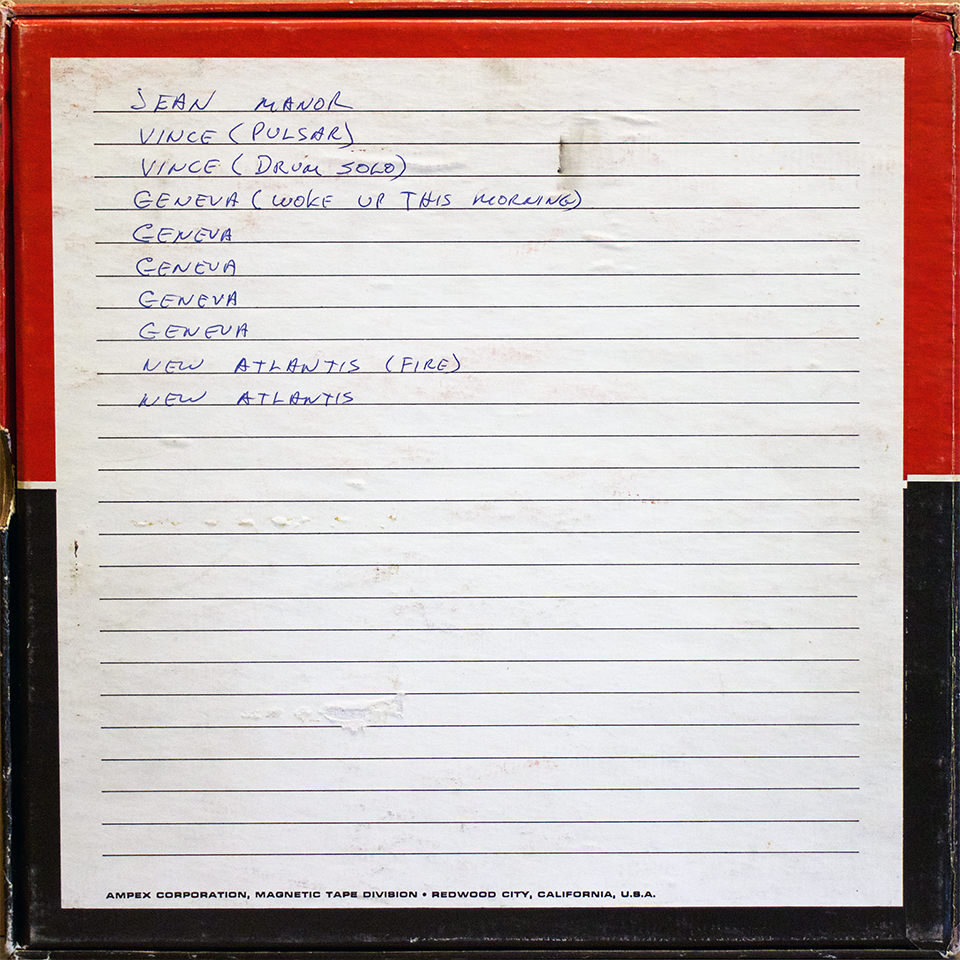 JEAN MANOR
VINCE (PULSAR)
VINCE (DRUM SOLO)
GENEVA (WOKE UP THIS MORNING)
GENEVA
GENEVA
GENEVA
GENEVA
NEW ATLANTIS (FIRE)
NEW ATLANTIS
AMPEX CORPORATION, MAGNETIC TAPE DIVISION • REDWOOD CITY, CALIFORNIA, U.S.A.